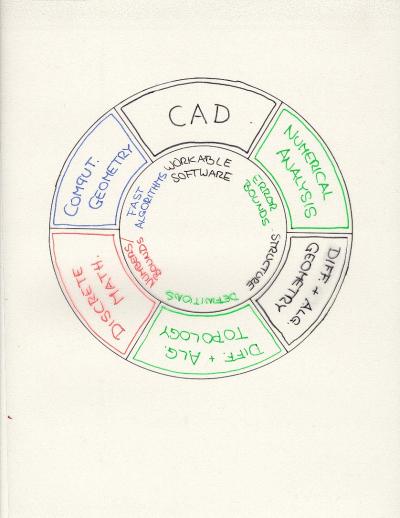 CAD
WORKABLE
SOFTWARE
NUMERICAL
ANALYSIS
ERROR
BOUNDS
DIFF. + ALG.
GEOMETRY
STRUCTURE
DIFF. + ALG.
TOPOLOGY
DEFINITIONS
DISCRETE
MATH.
NUMBERS/
BOUNDS
COMPUT.
GEOMETRY
FAST
ALGORITHMS